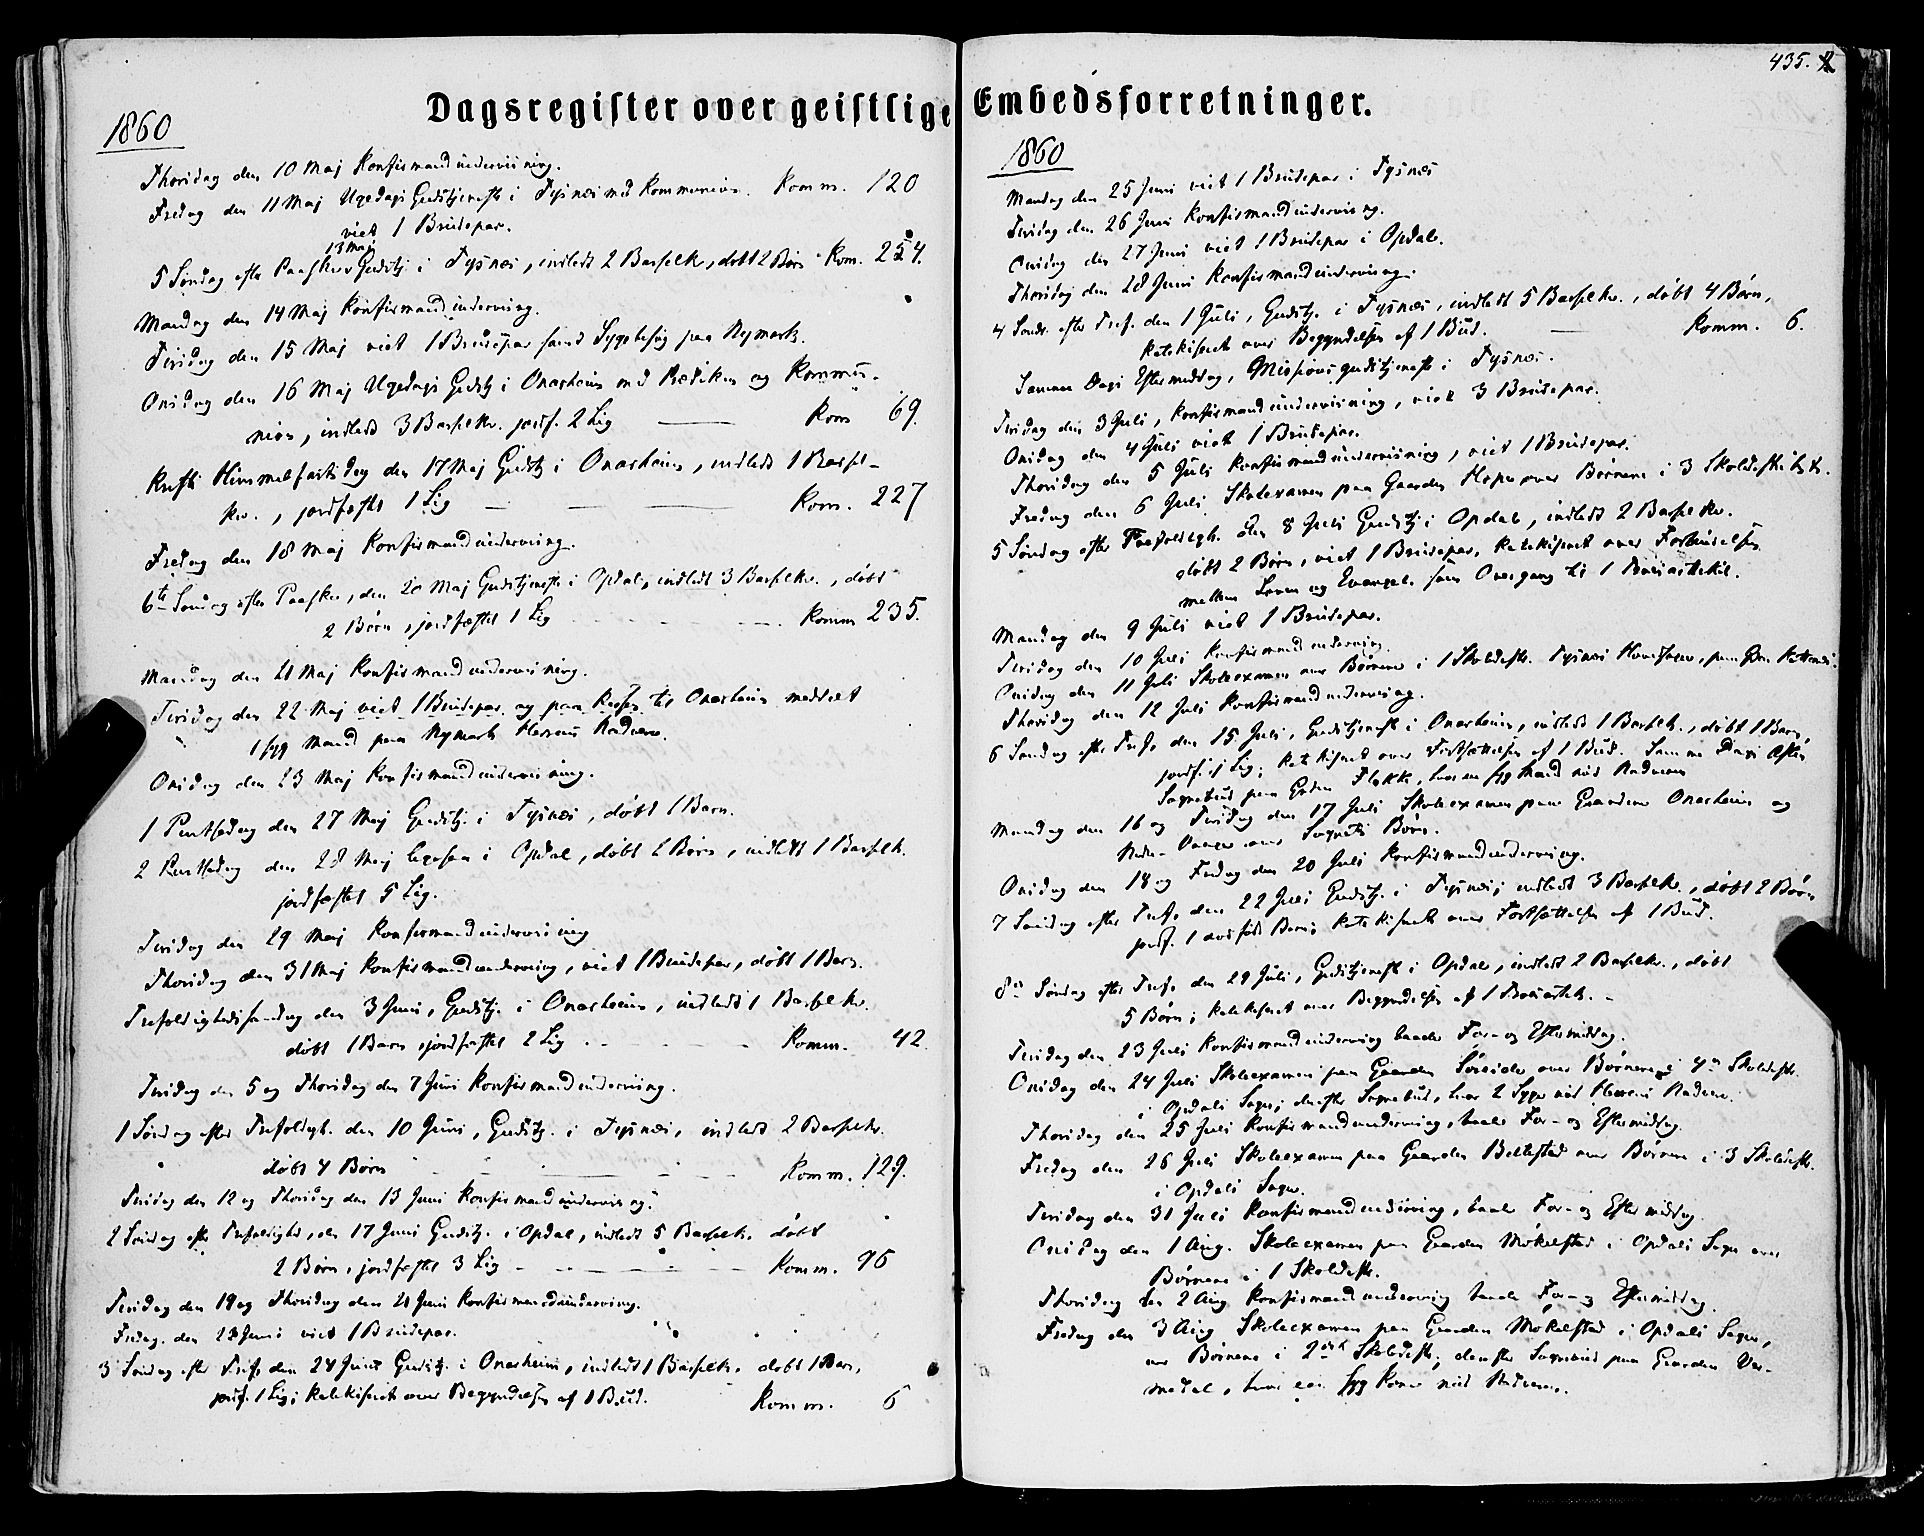 435.
Dagsregister over geistlige Embedsforretninger.
1860
Thorsdag den 10 Maj Konfirmandundervisning.
Fredag den 11 Maj Ugedags Gudstjeneste i Tysnæs med Kommunion. Komm. 120
viet 1 Brudepar.
13 Maj
5 Søndag efter Paaske Gudstj. i Tysnæs, indledt 2 Barselk., døbt 2 Børn Kom. 254.
Mandag den 14 Maj Konfirmandunderviisning.
Tirsdag den 15 Maj viet 1 Brudepar samt Sygebesøg paa Nymark.
Onsdag den 16 Maj Ugedags Gudstj. i Onarheim med Prædiken og Kommu-
nion, indledt 3 Barselkv. jordf. 2 Lig Kom 69.
Kristi Himmelfartsdag den 17 Maj Gudstj. i Onarheim, indledt 1 Barsel-
kv., jordfæstet 1 Lig Kom. 227
Fredag den 18 Maj Konfirmandunderviisning.
6te Søndag efter Paaske, den 20 Maj Gudstjeneste i Opdal, indledt 3 Barselkv., døbt
2 Børn, jordfæstet 1 Lig Komm 235.
Mandag den 21 Maj Konfirmandundervisning.
Tirsdag den 22 Maj viet 1 Brudepar og paa Reisen til Onarheim meddelt
1 syg Mand paa Nymark Herrens Nadvere.
Onsdag den 23 Maj Konfirmandundervisning.
1 Pintsedag den 27 Maj Gudstj. i Tysnæs, døbt 1 Barn.
2 Pintsedag den 28 Maj ligesaa i Opdal, døbt 2 Børn, indledt 1 Barselk.
jordfæstet 5 Lig.
Tirsdag den 29 Maj Konfirmandundervisning
Thorsdag den 31 Maj Konfirmandundervisning, viet 1 Brudepar, døbt 1 Barn.
Trefoldighedssøndag den 3 Juni, Gudstj. i Onarheim, indledt 1 Barselkv.
døbt 1 Barn, jordfæstet 2 Lig Komm. 42.
Tirsdag den 5 og Thorsdag den 7 Juni Konfirmandundervisning.
1 Søndag efter Trefoldigh. den 10 Juni, Gudstj. i Tysnæs, indledt 2 Barselkv.
døbt 4 Børn Komm. 129.
Tirsdag den 12 og Thorsdag den 13 Juni Konfirmandundervisning.
2 Søndag efter Trefoldighed, den 17 Juni Gudstj. i Opdal, indledt 5 Barselk. døbt
2 Børn, jordfæstet 3 Lig Komm. 96
Tirsdag den 19 og Thorsdag den 21 Juni Konfirmandundervisning.
Fredag den 23 Juni viet 1 Brudepar.
3 Søndag efter Tref. den 24 Juni Gudstj. i Onarheim, indledt 1 Barselk. døbt 1 Barn,
jordf. 1 Lig; katekiseret over Begyndelsen af 1 Bud. Komm. 6
1860
Mandag den 25 Juni viet 1 Brudepar i Tysnæs
Tirsdag den 26 Juni Konfirmandundervisning.
Onsdag den 27 Juni viet 1 Brudepar i Opdal.
Thorsdag den 28 Juni Konfirmandundervisning.
4 Sønd. efter Tref. den 1 Juli, Gudstj. i Tysnæs, indledt 5 Barselkv., døbt 4 Børn,
katekiseret over Begyndelsen af 1 Bud. Komm. 6.
Samme Dags Eftermiddag, Missionsgudstjeneste i Tysnæs.
Tirsdag den 3 Juli, Konfirmandundervisning, viet 3 Brudepar.
Onsdag den 4 Juli viet 1 Brudepar.
Thorsdag den 5 Juli Konfirmandundervisning, viet 1 Brudepar.
Fredag den 6 Juli Skoleexamen paa Gaarden over Børnene i 3 Skoledistrikt.
5 Søndag efter Trefoldigh. den 8 Juli Gudstj. i Opdal, indledt 2 Barselkv.
døbt 2 Børn, viet 1 Brudepar, katekiseret over Forskjellen
mellem Loven og Evangel. som Overgang til 1 Troesartikel.
Mandag den 9 Juli viet 1 Brudepar.
Tirsdag den 10 Juli Konfirmandundervisning.
Onsdag den 11 Juli Skoleexamen over Børnene i 1 Skoledistr. Tysnæs Hovedsogn, paa
Thorsdag den 12 Juli Konfirmandundervisning.
6 Søndag efter Tref. den 15 Juli, Gudstjeneste i Onarheim, indledt 1 Barselk., døbt 1 Barn,
jordf. 1 Lig; katekiseret over Fortsættelsen af 1 Bud. Samme Dags Aften
Sognebud paa Flakke, hos en syg Mand med Nadveren
Mandag den 16 og Tirsdag den 17 Juli Skoleexamen paa Gaardene Onarheim og
over Sognets Børn.
Onsdag den 18 og Fredag den 20 Juli Konfirmandundervisning.
7 Søndag efter Tref. den 22 Juli Gudstj. i Tysnæs; indledt 3 Barselkv., døbt 2 Børn
jordf. 1 dødfødt Barn; katekiseret over Fortsættelsen af 1 Bud.
8de Søndag efter Tref. den 29 Juli, Gudstjeneste i Opdal, indledt 2 Barselkv., døbt
5 Børn; katekiseret over Begyndelsen af 1 Troesartik.
Tirsdag den 23 Juli Konfirmandundervisning baade For- og Eftermiddag.
Onsdag den 24 Juli Skoleexamen paa Gaarden Søreide over Børnene i 4de Skoledistr.
i Opdals Sogn; derefter Sognebud, hos 2 Syge med Herrens Nadvere.
Thorsdag den 25 Juli Konfirmandundervisning, baade For- og Eftermiddag.
Fredag den 26 Juli Skoleexamen paa Gaarden over Børnene i 3 Skoledistr.
i Opdals Sogn.
Tirsdag den 31 Juli Konfirmandundervisning, baade For- og Eftermiddag
Onsdag den 1 Aug. Skoleexamen paa Gaarden Møkelstad i Opdals Sogn over
Børnene i 1 Skoledistr.
Thorsdag den 2 Aug Konfirmandundervisning baade For- og Eftermiddag.
Fredag den 3 Aug Skoleexamen paa Gaarden Møkelstad i Opdals Sogn,
over Børnene i 2det Skoledistr; derefter Sognebud paa Gaarden Ver-
medal, hos en syg Kone med Nadveren.